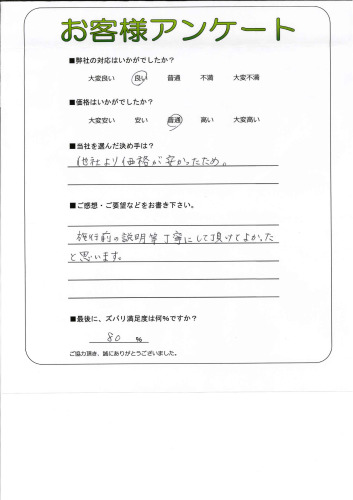 お客様アンケート
■弊社の対応はいかがでしたか?
大変良い 良い 普通 不満 大変不満
■価格はいかがでしたか?
大変安い 安い 普通 高い 大変高い
■当社を選んだ決め手は?
他社より価格が安かったため。
■ご感想・ご要望などをお書き下さい。
施行前の説明等丁寧にして頂けてよかった
と思います。
■最後に、ズバリ満足度は何%ですか?
80 %
ご協力頂き、誠にありがとうございました。